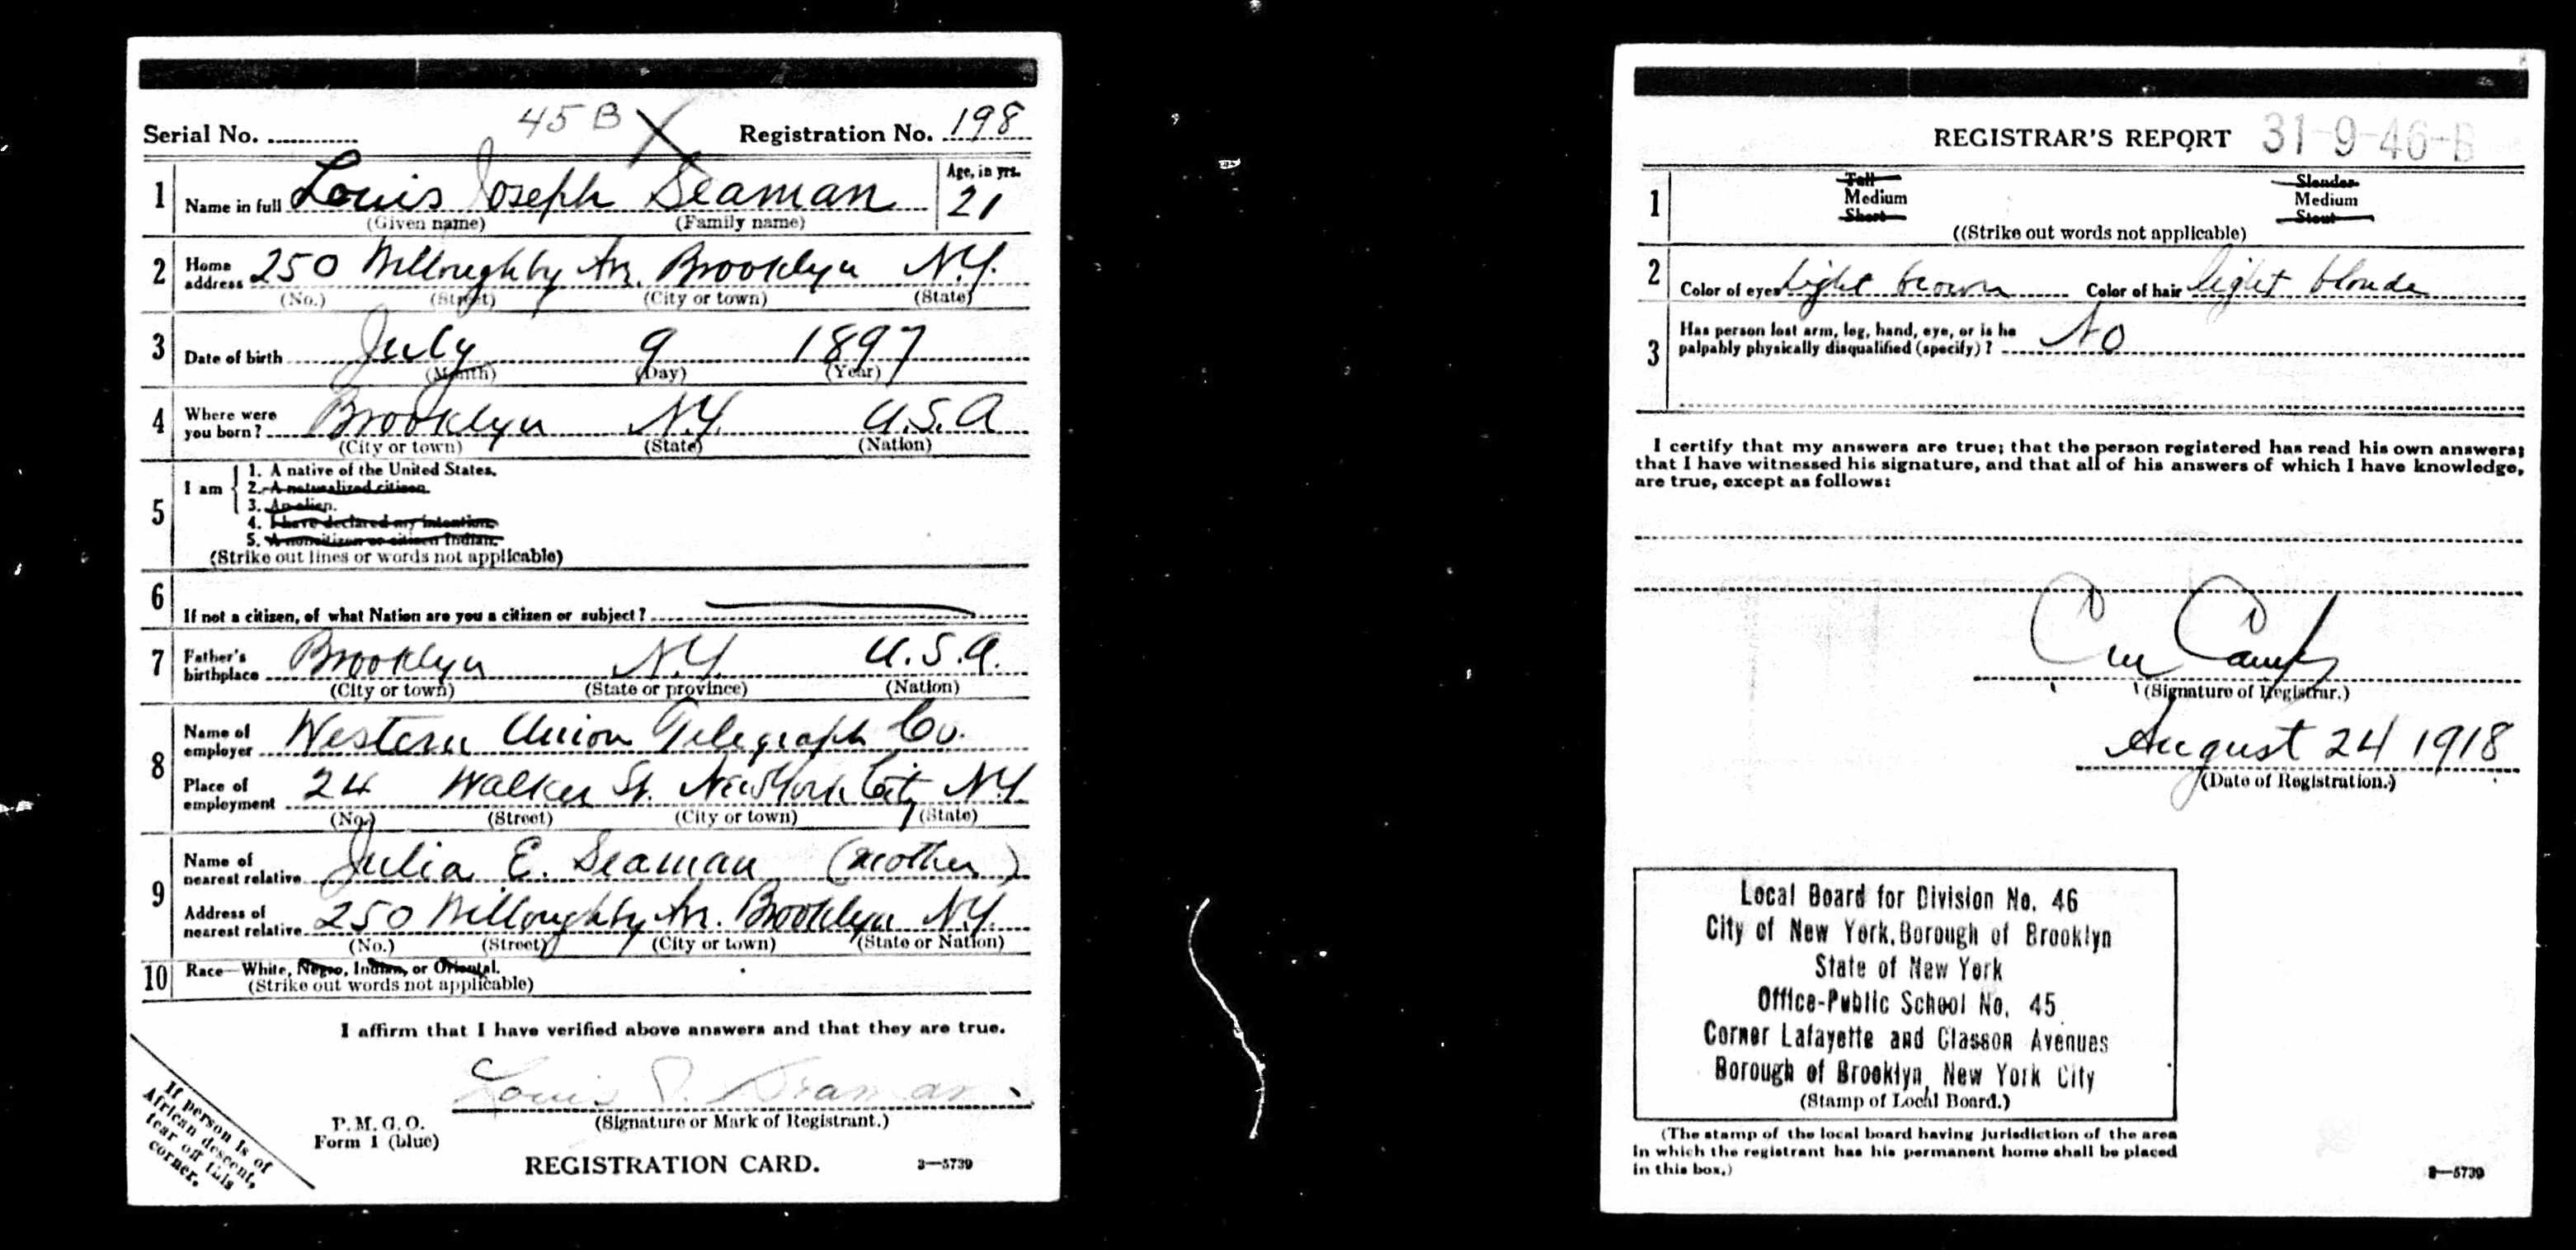 45 B X
Serial No. ............ Registration No. 198
1 Name in full Louis Joseph Seaman Age, in yrs. 21
(Given name) (Family name)
2 Home address 250 Willoughby Av. Brooklyn N.Y.
(No.) (Street) (City or town) (State)
3 Date of birth July 9 1897
(Month) (Day) (Year)
4 Where were you born? Brooklyn N.Y. U.S.A
(City or town) (State) (Nation)
5 I am
1. A native of the United States.
2. A naturalized citizen.
3. An alien.
4. I have declared my intention.
5. A noncitizen or citizen Indian.
(Strike out lines or words not applicable)
6 If not a citizen, of what Nation are you a citizen or subject?
7 Father's birthplace Brooklyn N.Y. U.S.A.
(City or town) (State or province) (Nation)
8 Name of employer Western Union Telegraph Co.
Place of employment 24 Walker St. New York City N.Y.
(No.) (Street) (City or town) (State)
9 Name of nearest relative Julia E. Seaman (mother)
Address of nearest relative 250 Willoughby Av. Brooklyn N.Y.
(No.) (Street) (City or town) (State or Nation)
10 Race—White, Negro, Indian, or Oriental.
(Strike out words not applicable)
I affirm that I have verified above answers and that they are true.
Louis J. Seaman
(Signature or Mark of Registrant.)
P.M.G.O.
Form 1 (blue)
REGISTRATION CARD. 3—5739
If person is of
African descent,
tear off this
corner.
REGISTRAR'S REPORT 31-9-46-B
1 Tall Slender
Medium Medium
Short Stout
((Strike out words not applicable)
2 Color of eyes light brown Color of hair light blonde
3 Has person lost arm, leg, hand, eye, or is he
palpably physically disqualified (specify)? No
I certify that my answers are true; that the person registered has read his own answers;
that I have witnessed his signature, and that all of his answers of which I have knowledge,
are true, except as follows:
(Signature of Registrar.)
August 24 1918
(Date of Registration.)
Local Board for Division No. 46
City of New York, Borough of Brooklyn
State of New York
Office-Public School No. 45
Corner Lafayette and Classon Avenues
Borough of Brooklyn, New York City
(Stamp of Local Board.)
(The stamp of the local board having jurisdiction of the area
in which the registrant has his permanent home shall be placed
in this box.)
3—5739